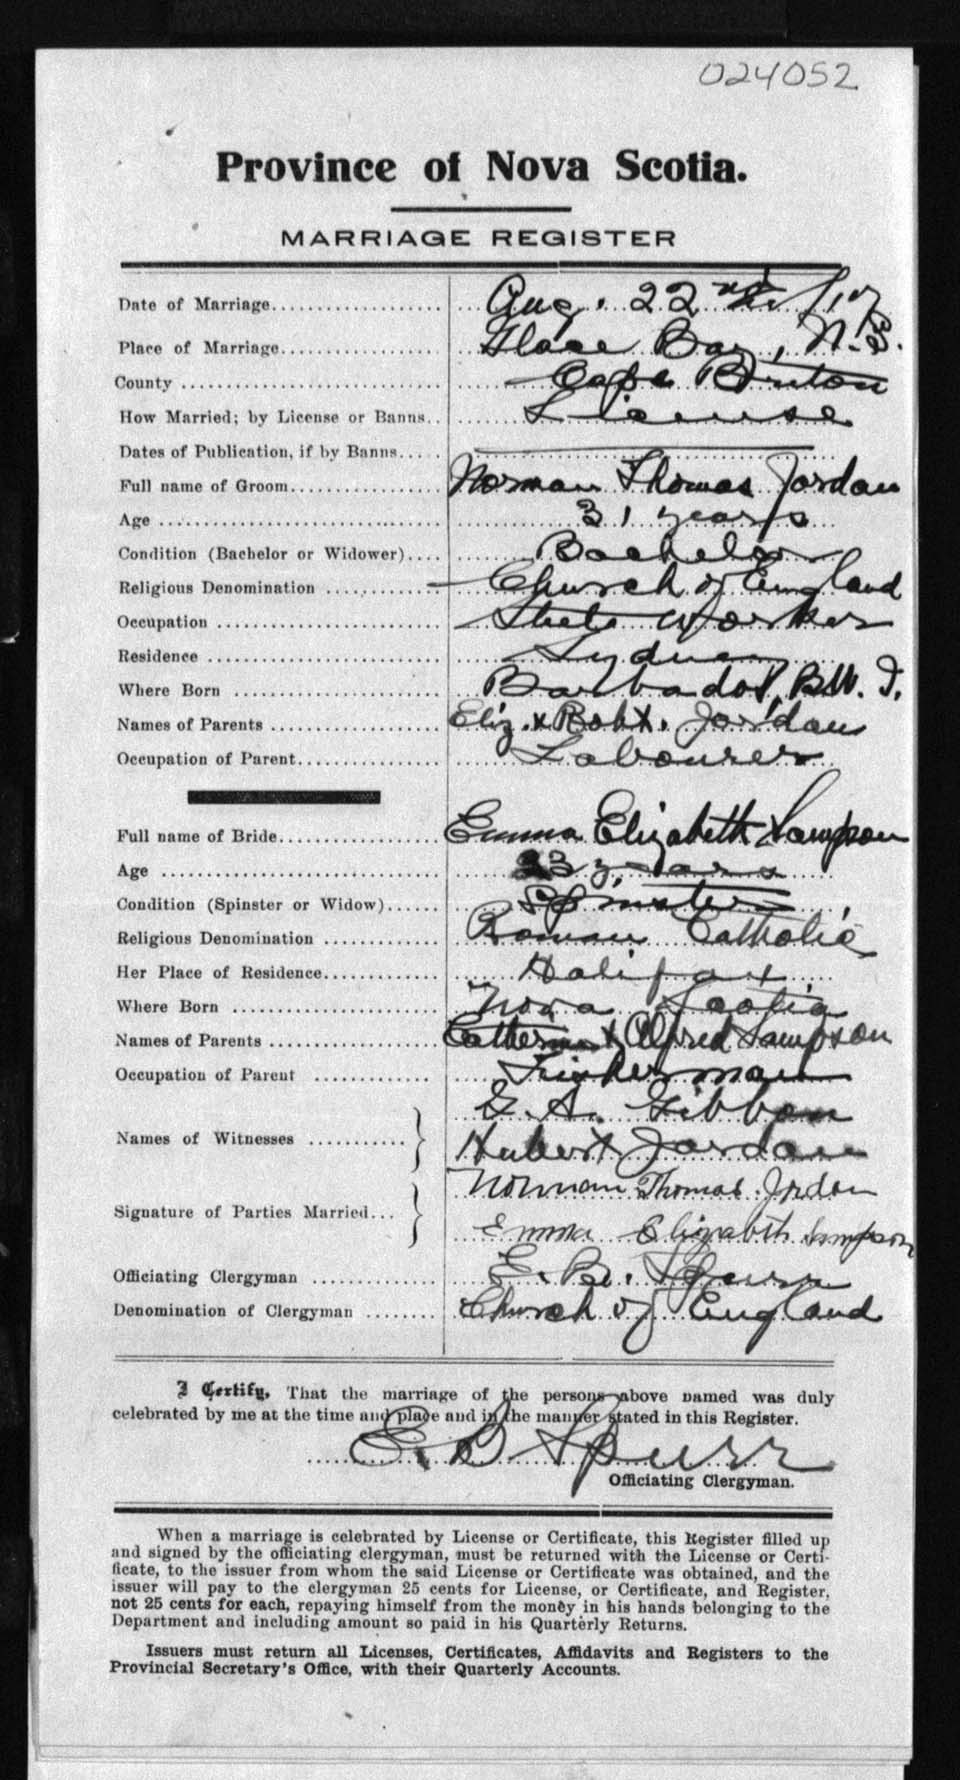 024052
Province of Nova Scotia.
MARRIAGE REGISTER
Date of Marriage.................... Aug. 22nd
Place of Marriage................... Glace Bay,
County ............................. Cape Breton
How Married; by License or Banns.. License
Dates of Publication, if by Banns.....
Full name of Groom................ Norman Thomas Jordan
Age ............................... 31 years
Condition (Bachelor or Widower).... Bachelor
Religious Denomination ............ Church of England
Occupation ........................ Worker
Residence ......................... Sydney
Where Born ....................... Barbados, B.W.I.
Names of Parents .................. Eliz. x Robt. Jordan
Occupation of Parent............... Labourer
Full name of Bride................. Emma Elizabeth Sampson
Age ............................... 23 years
Condition (Spinster or Widow)...... Spinster
Religious Denomination ............ Roman Catholic
Her Place of Residence............. Halifax
Where Born ....................... Nova Scotia
Names of Parents .................. Catherine x Alfred Sampson
Occupation of Parent ..............
G. A. Gibbon
Names of Witnesses ........... }
Hubert Jordan
Norman Thomas Jordan
Signature of Parties Married... }
Emma Elizabeth Sampson
Officiating Clergyman ............. E. B. Spurr
Denomination of Clergyman ........ Church of England
I Certify, That the marriage of the persons above named was duly
celebrated by me at the time and place and in the manner stated in this Register.
E. B Spurr
Officiating Clergyman.
When a marriage is celebrated by License or Certificate, this Register filled up
and signed by the officiating clergyman, must be returned with the License or Certi-
ficate, to the issuer from whom the said License or Certificate was obtained, and the
issuer will pay to the clergyman 25 cents for License, or Certificate, and Register,
not 25 cents for each, repaying himself from the money in his hands belonging to the
Department and including amount so paid in his Quarterly Returns.
Issuers must return all Licenses, Certificates, Affidavits and Registers to the
Provincial Secretary's Office, with their Quarterly Accounts.